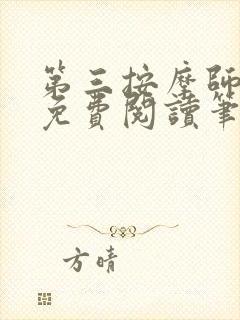 第三按摩師
免費閱讀筆
方晴